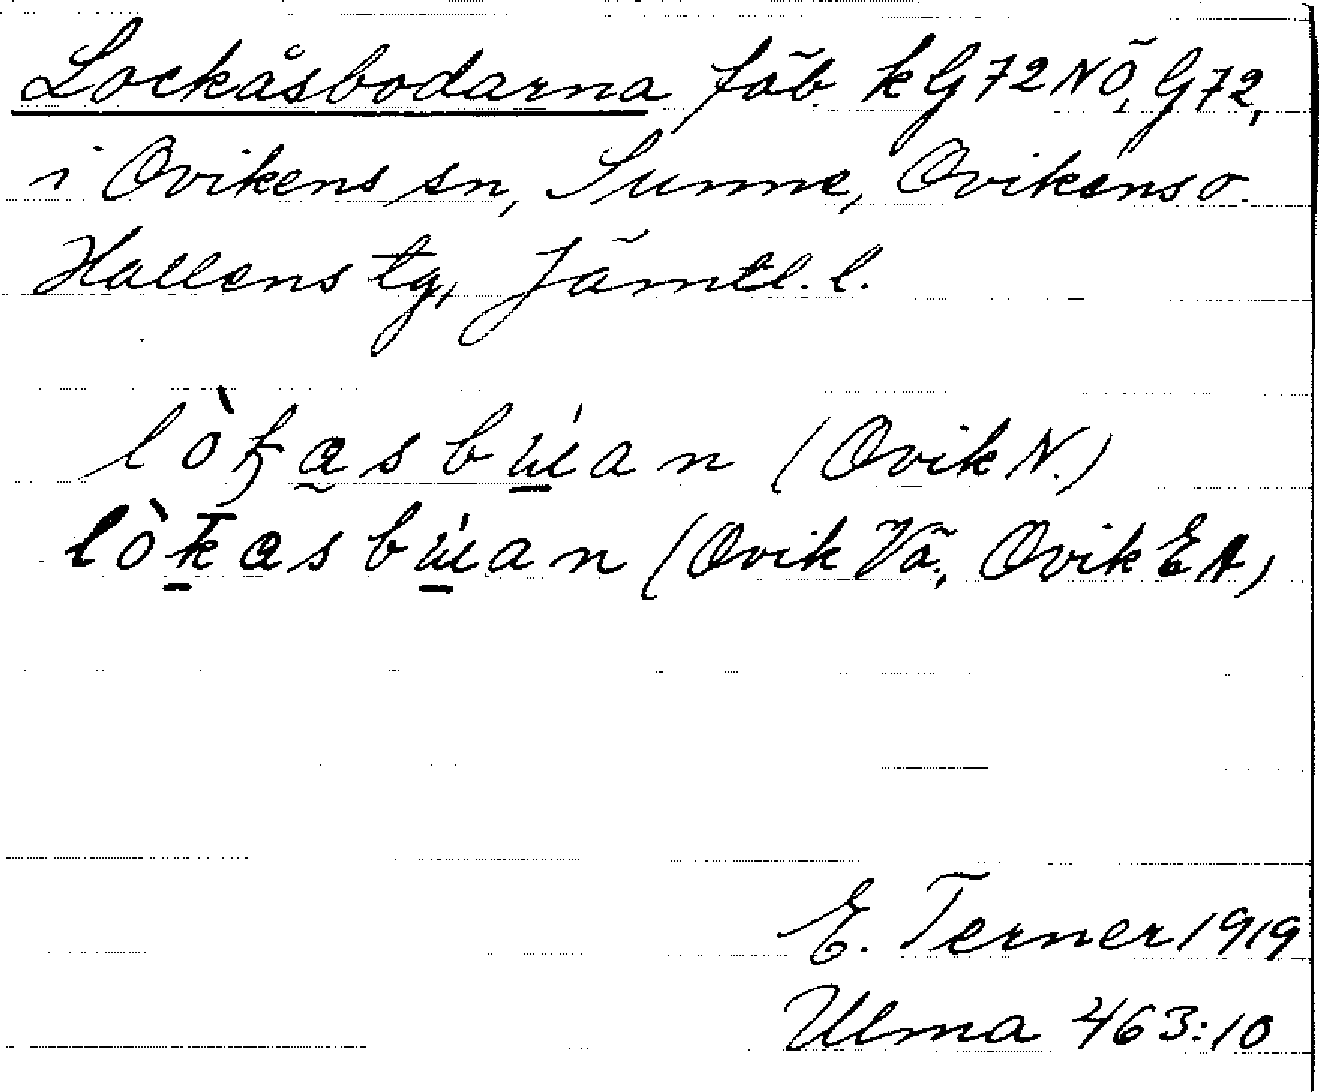 Lockåsbodarna fäb. k G72NÖ, G72,
i Ovikens sn, Sunne, Ovikens o.
Hallens tg, Jämtl. l.
(Ovik N.)
(Ovik Vä, Ovik EA)
E. Terner 1919
Ulma 463:10